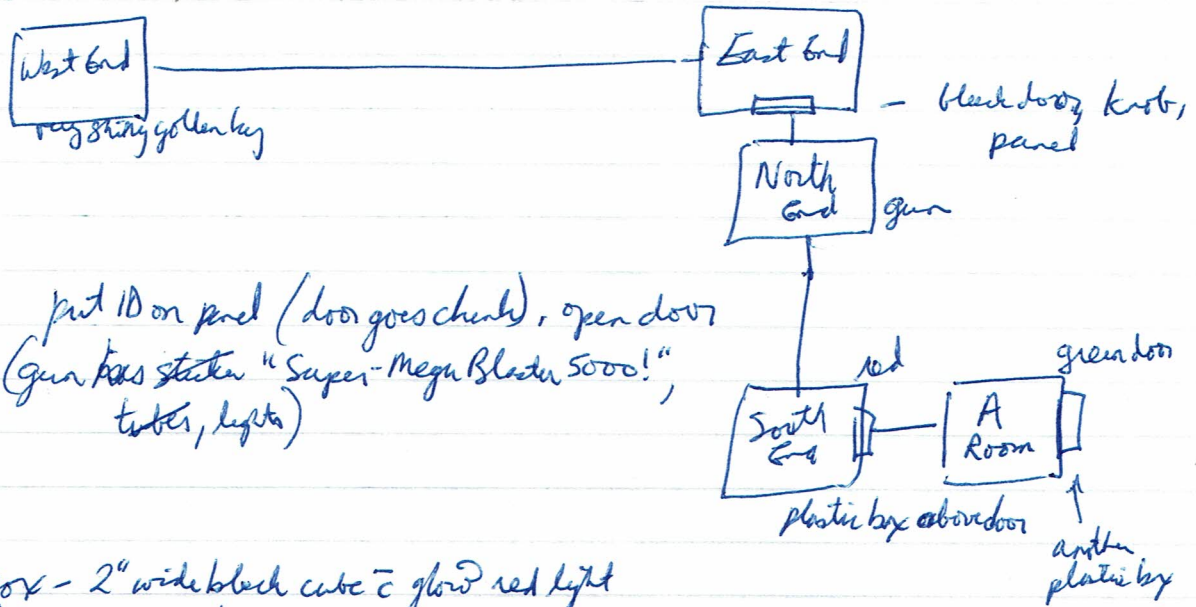 West End
East End
very shiny golden key
- black door, knob,
panel
North
End
gun
put ID on panel (door goes chunk), open door
(gun has sticker "Super-Mega Blaster 5000!",
tubes, lights)
red
green door
South
End
A
Room
plastic box above door
another
plastic box
ox - 2" wide black cube c̄ glow red light